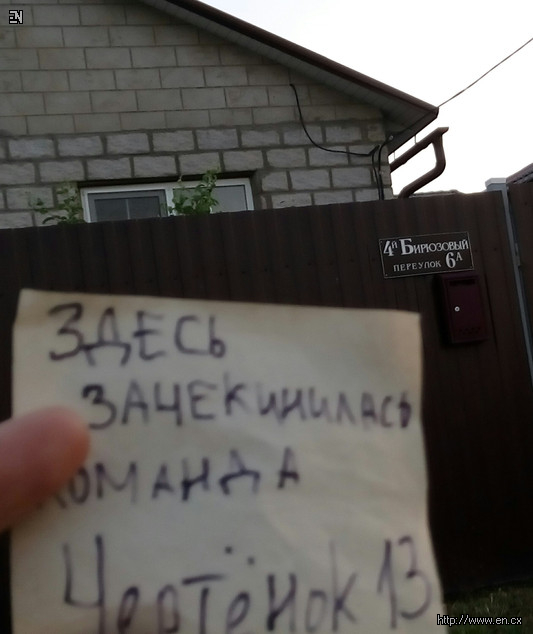 EN
4й Бирюзовый
переулок 6А
ЗДЕСЬ
ЗАЧЕКИНИЛАСЬ
КОМАНДА
Чертёнок 13
http://www.en.cx